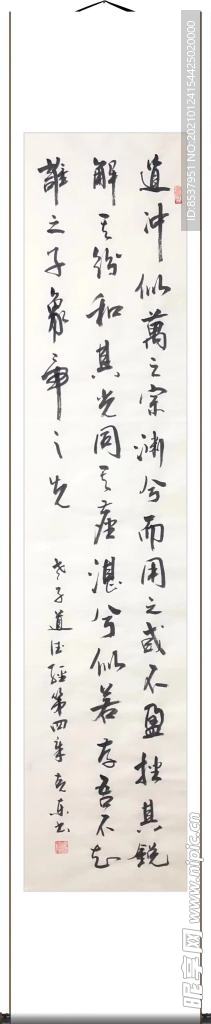 道沖似萬之宗渊兮而用之或不盈挫其銳
解其紛和其光同其塵湛兮似若存吾不知
誰之子象帝之先
老子道德經第四章
ID:8537951 NO:20210124154425020000
昵享网 www.nipic.cn